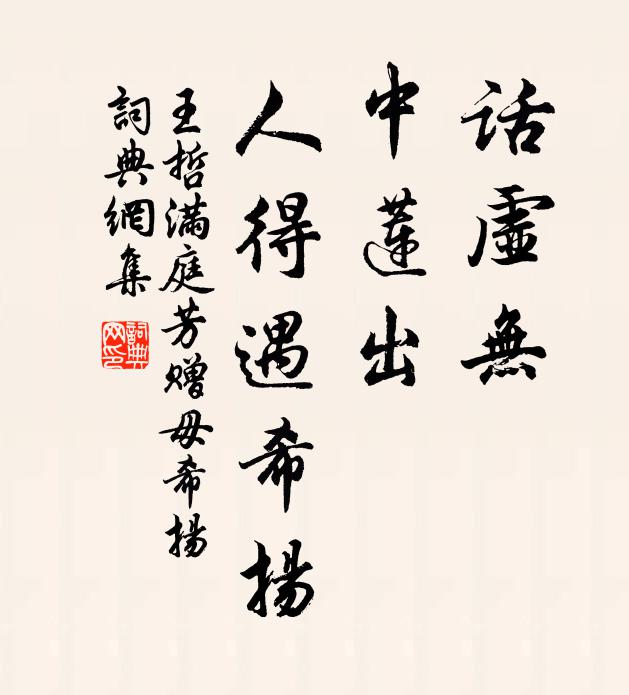 话虛無
中蓮出
人得遇希揚
王哲滿庭芳赠毋希揚
詞典網集
詞典網印